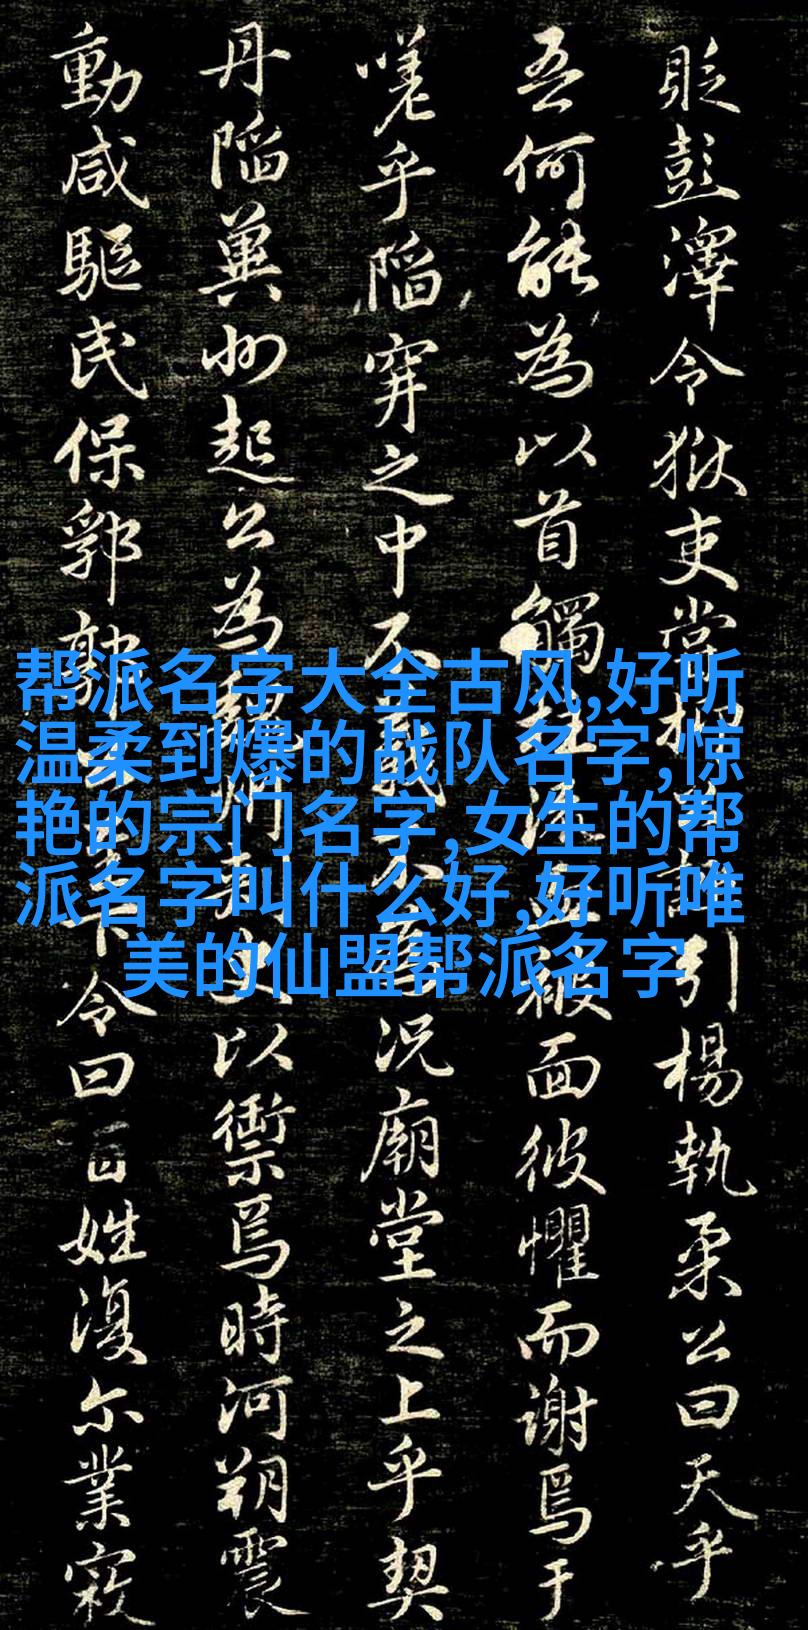 貶彭澤令獄吏嘗引楊執柔公曰天乎
吾何能為以首觸柱流血被面彼懼而謝焉于
嗟乎陷穽之中不義不為況廟堂之上乎契
丹陷冀州起公為魏州刺史以禦焉時河朔震
動咸驅民保郛郭令曰百姓復尔業寇
帮派名字大全古风,好听
温柔到爆的战队名字,惊
艳的宗门名字,女生的帮
派名字叫什么好,好听唯
美的仙盟帮派名字